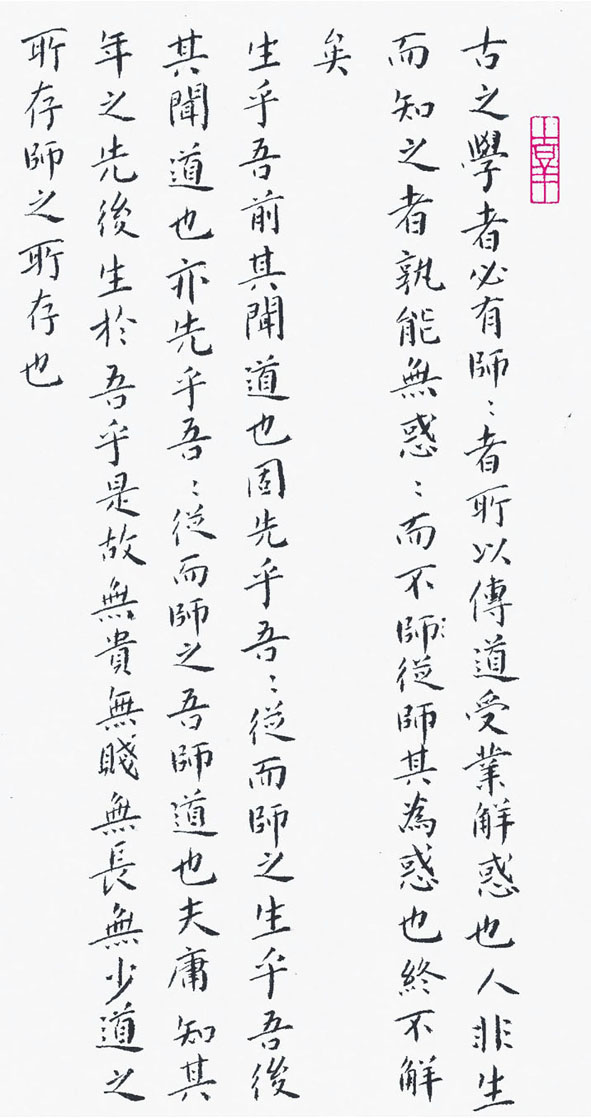 古之學者必有師〻者所以傳道受業解惑也人非生
而知之者孰能無惑〻而不師從師其為惑也終不解
矣
生乎吾前其聞道也固先乎吾〻從而師之生乎吾後
其聞道也亦先乎吾〻從而師之吾師道也夫庸知其
年之先後生於吾乎是故無貴無賤無長無少道之
所存師之所存也